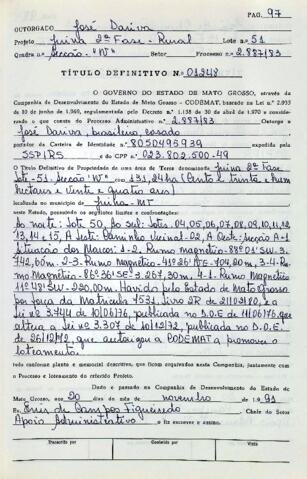 PAG. 97
OUTORGADO José Dariva
Projeto Juina 2ª Fase - Rural Lote n.o 51
Quadra n.o Secção "N" Setor Processo n.o 2.887/83
TÍTULO DEFINITIVO N.o 01348
O GOVERNO DO ESTADO DE MATO GROSSO, através da
Companhia de Desenvolvimento do Estado de Mato Grosso - CODEMAT, baseado na Lei n.o 2.935
de 10 de junho de 1.969, regulamentada pelo Decreto n.o 1.138 de 30 de abril de 1.970 e considerando
o que consta do Processo Administrativo n.o 2.887/83 Outorga a
José Dariva, brasileiro, casado
portador da Carteira de Identidade n.o 8050495939 expedida no
SSP/RS e do CPF n.o 023.802.500-49
O Título Definitivo de Propriedade de uma área de Terras denominada Juina 2ª Fase
Lote-51-Secção "N" com 131,24ha (Cento e trinta e hum
hectares e vinte e quatro ares)
localizada no município de Juina-MT
neste Estado, possuindo os seguintes limites e confrontações:
Ao norte: Lote 50, Ao sul: Lotes 04,05,06,07,08,09,10,11,12,
13,14 e 15, A Leste: Caminho Vicinal-02, A Oeste: Secção A-1
Situação dos Marcos: 1-2. Rumo magnético-88º01'SW-3.
742,60m. 2-3. Rumo Magnético-41º26'NE-704,80m, 3-4-Ru-
mo Magnético-86º36'SE-3.267,30m. 4-1. Rumo Magnético
11º48'SW-220,00m. Havido pelo Estado de Mato Grosso
por força da Matricula 7531, Livro 2R de 21/03/80, e a
lei nº 3.744 de 10/06/76, publicada no D.O.E de 11/06/76, que
altera a lei nº 3.307 de 10/12/72, publicada no D.O.E.
de 26/12/72, que autorizou a CODEMAT a promover o
loteamento.
tudo conforme planta e memorial descritivo, que ficam arquivados nesta Companhia, juntamente com
o Processo e loteamento do referido Projeto.
Dado e passado na Companhia de Desenvolvimento do Estado de
Mato Grosso, aos 20 dias do mês de novembro de 1991
Eu Enes de Campos Figueiredo Chefe do Setor
Apoio Administrativo o fiz escrever e assino.
Transcrito por Conferido por Visto